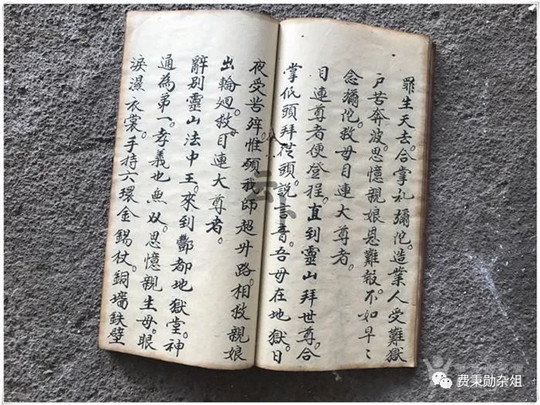 罪生天去。合掌礼彌陀。造業人受難獄
户苦奔波。思憶親娘恩難報。不如早〻
念彌陀。救母目連大尊者。
目連尊者便登程。直到靈山拜世尊。合
掌低頭拜從頭。說言音。吾母在地獄日
夜受苦殃。惟願我師超升路。相救親娘
出輪廻。救目連大尊者。
辭别靈山法中王。來到酆都地獄堂。神
通為第一。孝義也無双。思憶親生母。眼
淚漫衣裳。手持六環金錫杖。銅墻鉄壁
费秉勋杂俎